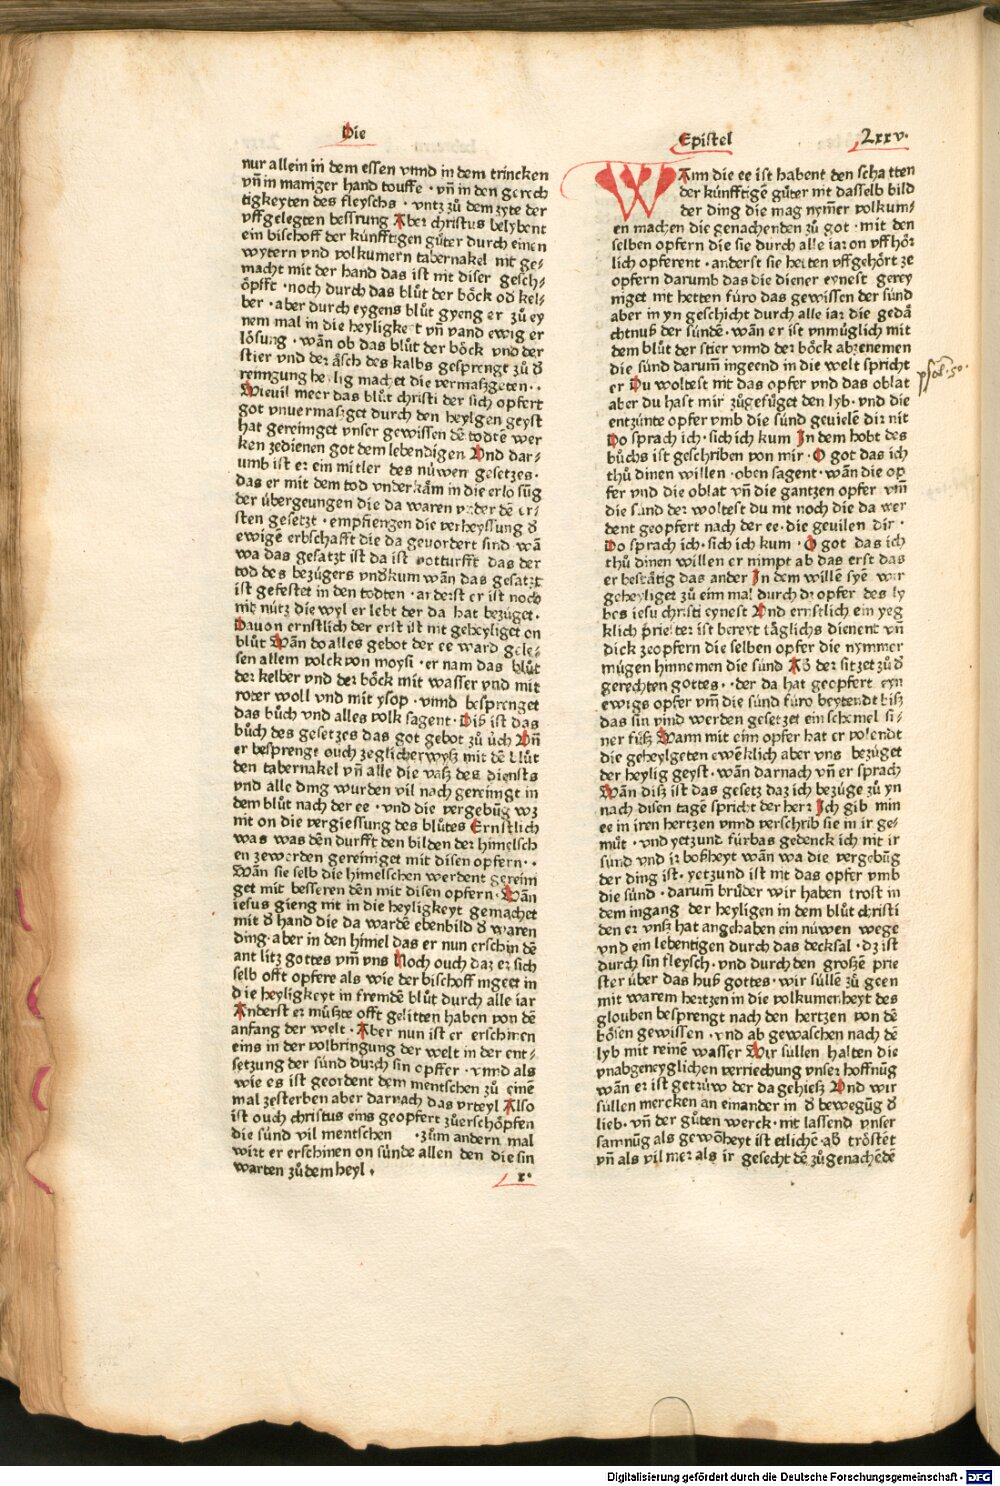 Die
Epistel
Lxxv.
nur allein in dem essen vnnd in dem trincken
vn̄ in maniger hand touffe · vn̄ in den gerech
tigkeyten des fleyschs · vntz zů dem zyte der
vffgelegten bessrung Aber christus belybent
ein bischoff der künfftigen gůter durch einen
wytern vnd volkumern tabernakel nit ge⸗
macht mit der hand das ist nit diser gesch⸗
öpfft · noch durch das blůt der böck od̓ kel⸗
ber · aber durch eygens blůt gyeng er zů ey
nem mal in die heyligkeit vn̄ vand ewig er
lösung · wān ob das blůt der böck vnd der
stier vnd der äsch des kalbs gesprengt zů d̓
reinigung heylig machet die vermaßgeten ·
Wieuil meer das blůt christi der sich opfert
got vnuermaßget durch den heylgen geyst
hat gereiniget vnser gewissen dē todtē wer
ken zedienen got dem lebendigen Vnd dar⸗
umb ist er ein mitler des nüwen gesetzes ·
das er mit dem tod vnderkäm in die erlosūg
der übergeungen die da waren vnder dē er⸗
sten gesetzt · empfiengen die verheyssung d̓
ewigē erbschafft die da geuordert sind wā
wa das gesatzt ist da ist notturfft das der
tod des bezügers vnd̓kum wān das gesatzt
ist gefestet in den todten · anderst er ist noch
nit nütz die wyl er lebt der da hat bezüget ·
Dauon ernstlich der erst ist nit geheyliget on
blůt Wān do alles gebot der ee ward gele⸗
sen allem volck von moysi · er nam das blůt
der kelber vnd der böck mit wasser vnd mit
roter woll vnd mit ysop · vnnd besprenget
das bůch vnd alles volk sagent · Diß ist das
bůch des gesetzes das got gebot zů üch Vn̄
er besprengt ouch zeglicherwyß mit dē blůt
den tabernakel vn̄ alle die vaß des diensts
vnd alle ding wurden vil nach gereiniget in
dem blůt nach der ee · vnd die vergebūg wz
nit on die vergiessung des blůtes Ernstlich
was was dēn durfft den bilden der himelsch
en zewerden gereiniget mit disen opfern ·
Wān sie selb die himelschen werdent gereini
get mit besseren dēn mit disen opfern · Wān
iesus gieng nit in die heyligkeyt gemachet
mit d̓ hand die da wardē ebenbild d̓ waren
ding · aber in den himel das er nun erschin dē
antlitz gottes vm̄ vns Noch ouch daz er sich
selb offt opfere als wie der bischoff ingeet in
die heyligkeyt in fremdē blůt durch alle iar
Anderst er můßte offt gelitten haben von dē
anfang der welt · Aber nun ist er erschinen
eins in der volbringung der welt in der ent⸗
setzung der sünd durch sin opffer · vnnd als
wie es ist geordent dem mentschen zů einē
mal zesterben aber darnach das vrteyl Also
ist ouch christus eins geopfert zůerschöpfen
die sünd vil mentschen · zům andern mal
wirt er erschinen on sünde allen den die sin
warten zů dem heyl ·
x.
WAnn die ee ist habent den schatten
der künfftigē gůter nit dasselb bild
der ding die mag nymer volkum⸗
en machen die genachenden zů got · mit den
selben opfern die sie durch alle iar on vffhör
lich opferent · anderst sie hetten vffgehört ze
opfern darumb das die diener eynest gerey
niget nit hetten füro das gewissen der sünd
aber in yn geschicht durch alle iar die gedä
chtnuß der sündē · wān er ist vnmüglich mit
dem blůt der stier vnnd der böck abzenemen
die sünd darum̄ ingeend in die welt spricht
er Du woltest nit das opfer vnd das oblat
aber du hast mir zůgefüget den lyb · vnd die
entzünte opfer vmb die sünd geuielē dir nit
Do sprach ich · sich ich kum In dem hobt des
bůchs ist geschriben von mir · O got das ich
thů dinen willen · oben sagent · wān die op
fer vnd die oblat vn̄ die gantzen opfer vm̄
die sünd der woltest du nit noch die da wer
dent geopfert nach der ee · die geuilen dir ·
Do sprach ich · sich ich kum · O got das ich
thů dinen willen er nimpt ab das erst das
er bestätig das ander In dem willē syē wir
geheyliget zů eim mal durch dz opfer des ly
bes iesu christi eynest Vnd ernstlich ein yeg
klich priester ist bereyt täglichs dienent vn̄
dick zeopfern die selben opfer die nymmer
mügen hinnemen die sünd Ab̓ der sitzet zů d̓
gerechten gottes · der da hat geopfert eyn
ewigs opfer vm̄ die sünd füro beytendt biß
das sin vind werden gesetzet ein schemel si⸗
ner füß Wann mit eim opfer hat er volendt
die geheylgeten ewēklich aber vns bezüget
der heylig geyst · wān darnach vn̄ er sprach
Wān diß ist das gesetz daz ich bezüge zů yn
nach disen tagē spricht der herr Ich gib min
ee in iren hertzen vnnd verschrib sie in ir ge⸗
můt · vnd yetzund fürbas gedenck ich nit ir
sünd vnd ir boßheyt wān wa die vergebūg
der ding ist · yetzund ist nit das opfer vmb
die sünd · darum̄ brůder wir haben trost in
dem ingang der heyligen in dem blůt christi
den er vnß hat angehaben ein nüwen wege
vnd ein lebentigen durch das decksal · dz ist
durch sin fleysch · vnd durch den großē prie
ster über das huß gottes · wir süllē zů geen
mit warem hertzen in die volkumenheyt des
glouben besprengt nach den hertzen von dē
bösen gewissen · vnd ab gewaschen nach dē
lyb mit reinē wasser Wir süllen halten die
vnabgeneyglichen verriechung vnser hoffnūg
wān er ist getrüw der da gehieß Vnd wir
süllen mercken an einander in d̓ bewegūg d̓
lieb · vn̄ der gůten werck · nit lassend vnser
samnūg als gewōheyt ist etlichē · ab̓ tröstēt
vn̄ als vil mer als ir gesecht dē zůgenachēdē
Digitalisierung gefördert durch die Deutsche Forschungsgemeinschaft - DFG